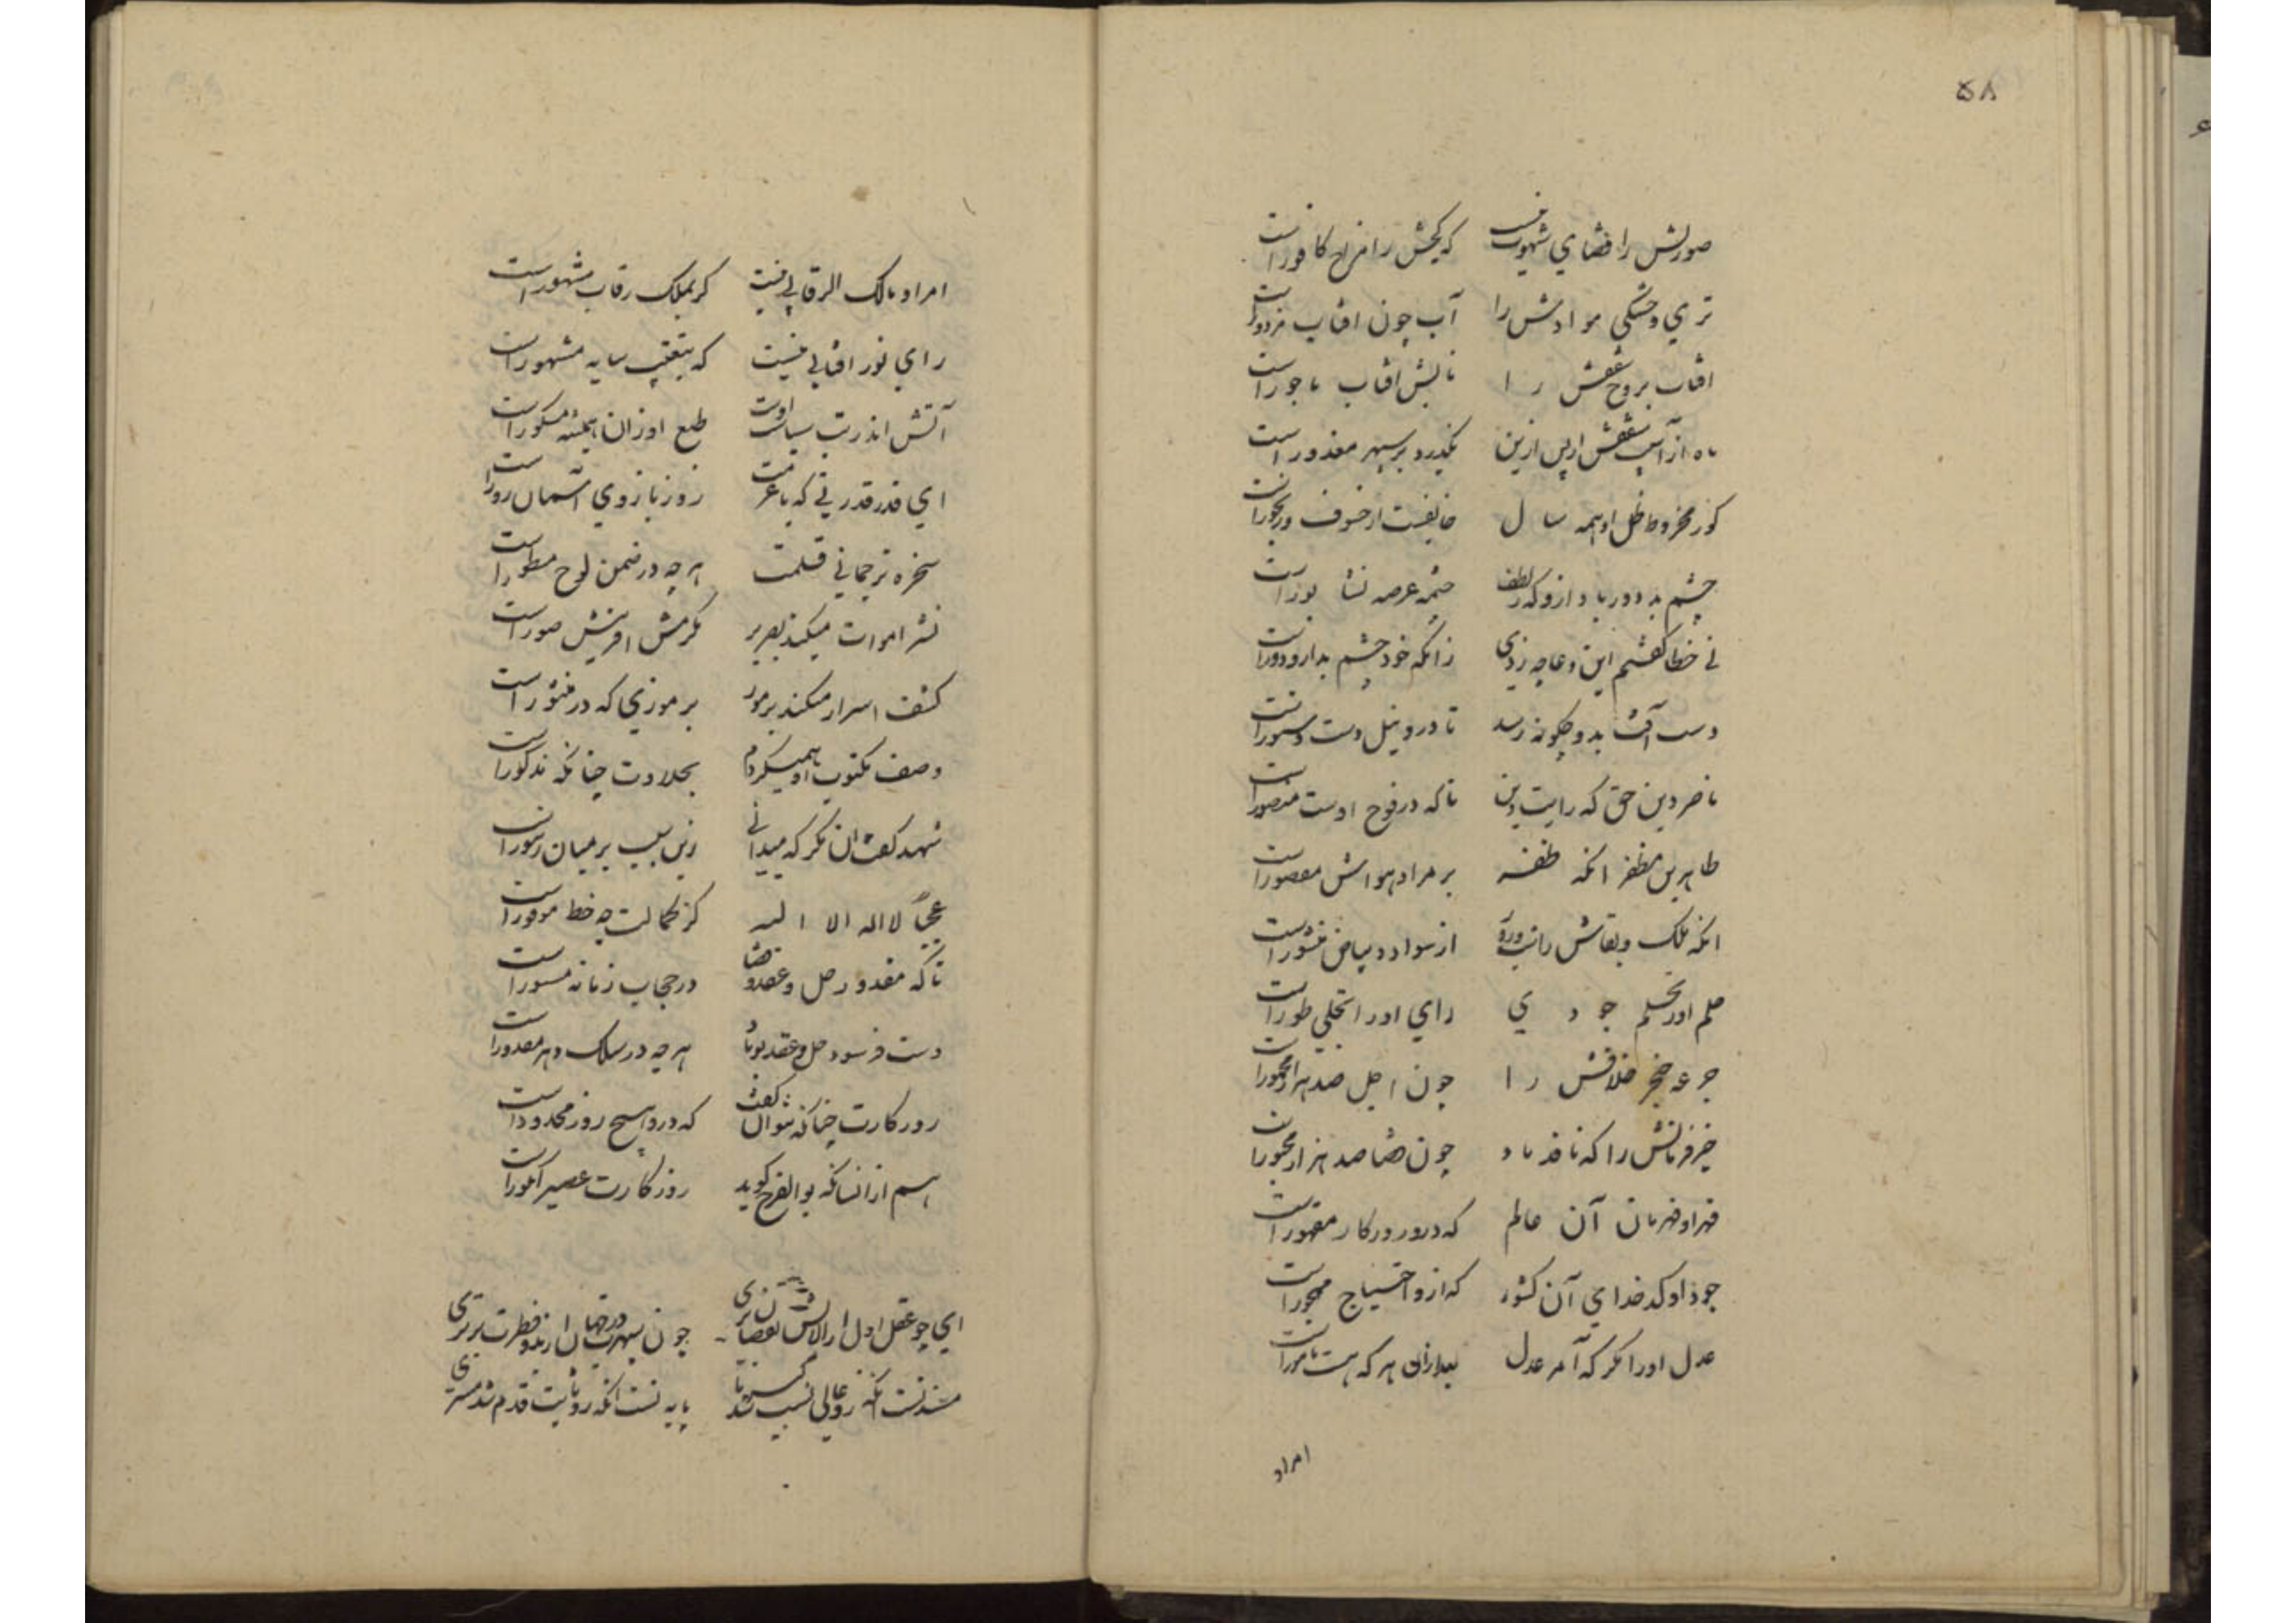 ۵۸
صورتش را قضای شهوت نیست که کچش را مزاج کافور است
تری و خشکی موادش را آب چون افتاب مزدور است
افتاب بروج سقفش را تابش افتاب باجور است
ماه از آسیب سقفش از پس ازین نگذرد بر سپهر معذور است
کز مخروط ظل او همه سال خایفست از خسوف و رنجور است
چشم بد دور باد ازو که ز لطف چشمه عرصه نشابور است
نی خطا گفتم این دعا چه زنی زانکه خود چشم بد ازو دور است
دست آفت بدو چگونه رسد تا درو نیل دست دستور است
ناصر دین حق که رایت دین تا که در فوج اوست منصور است
طاهر بن مظفر انکه ظفر بر مراد هواش مقصور است
انکه ملک وبقاش را شب و روز از سواد و بیاض منشور است
حلم او را تحمل جودی رای او را تجلی طور است
جرعه خنجر خلافش را چون اجل صد هزار مخمور است
خیز فرمانش را که نافذ باد چون قضا صد هزار مجبور است
قهر او قهرمان آن عالم که درو روزگار مقهور است
جود او کدخدای آن کشور که ازو احتیاج مهجور است
عدل او را مگر که آمر عدل بعد ازان هر که هست مامور است
امراد
امر او مالک الرقابی نیست کز بملک رقاب مشهور است
رای نور افتابی نیست که بتعقیب سایه مشهور است
آتش اندر تب سیاست اوست طبع او زان همیشه محرور است
ای قدر قدرتی که با عزمت زور بازوی آسمان زور است
سخره ترجمانی قلمت هر چه در ضمن لوح مسطور است
نشر اموات میکند بصریر مگرمش افرینش صور است
کشف اسرار میکند برموز بر موزی که در منثور است
وصف مکتوب او همیکردم بحلاوت چنانکه مذکور است
شهد گفت ان مگر که میدانی زین سبب بر میان زنبور است
عجبا لااله الا الله کز کمالت چه حظ موفور است
تا که مقدور حل و عقد قضا در حجاب زمانه مستور است
دست فرسود حل و عقد تو باد هر چه در سلک دهر مقدور است
روزکارت چنانکه نتوان گفت که درو هیچ روز محدود است
هم ازانسانکه بوالفرج گوید روزکارت عصیر انگور است
ای چو عقل اول از الایش نقصان بری چون سپهرت در جهان از بدو فطرت برتری
مسند تست انکه ز و عالی نسب شد پایه تست انکه زو ثابت قدم شد مشتری